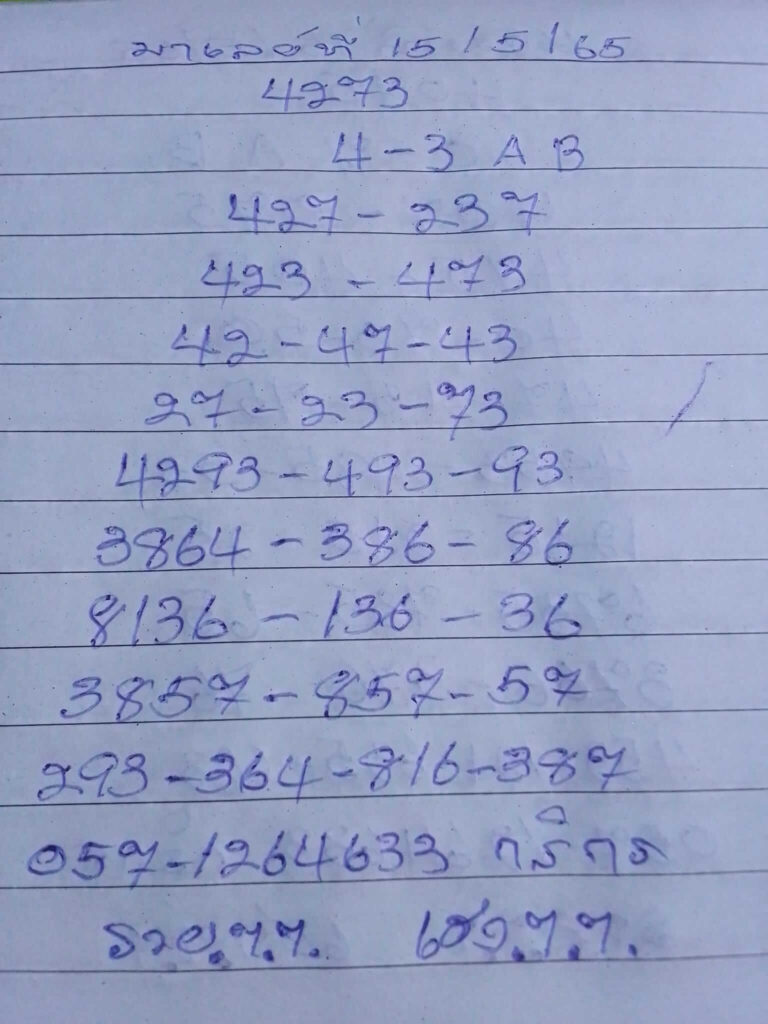 มาเลย์ที่ 15/5/65
4273
4-3 A B
427-237
423-473
42-47-43
27-23-73
4293-493-93
3864-386-86
8136-136-36
3857-857-57
293-364-816-387
057-1264633
รวย.ๆ.ๆ. เฮง.ๆ.ๆ.